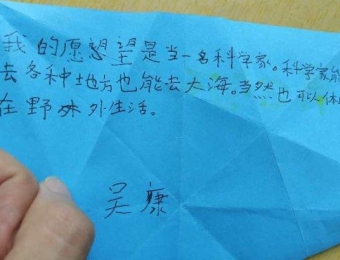 我的愿望是当一名科学家。科学家能
去各种地方也能去大海。当然也可以体
在野外生活。
吴康